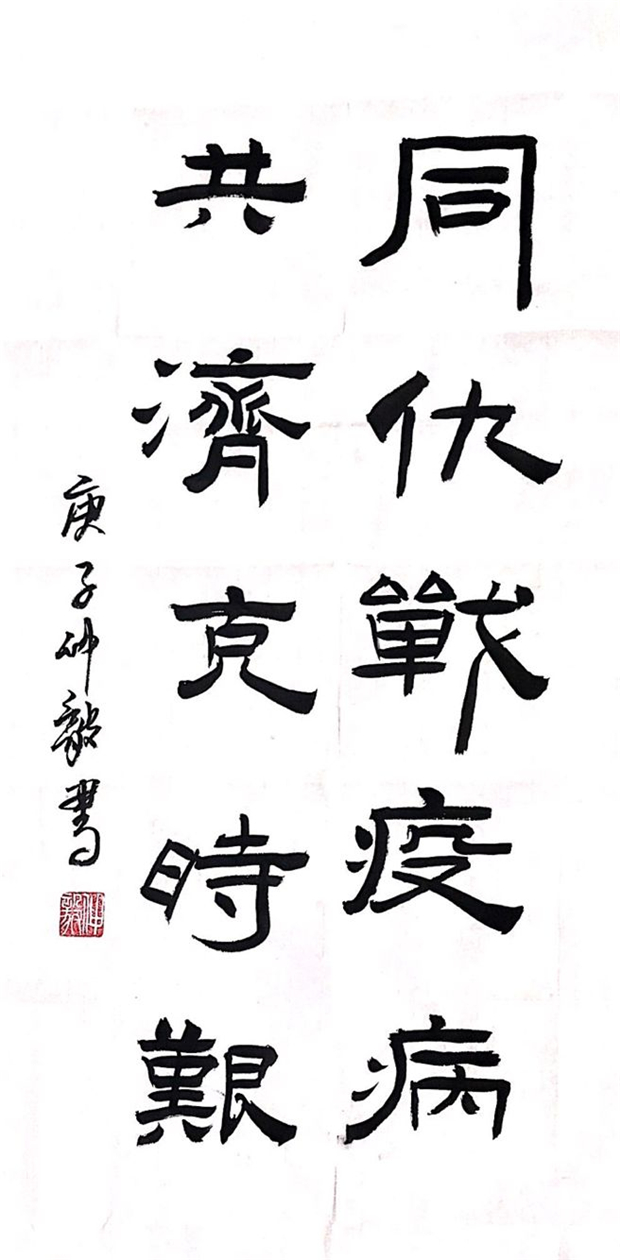 同仇戰疫病
共濟克時艱
庚子仲毅書
仲毅